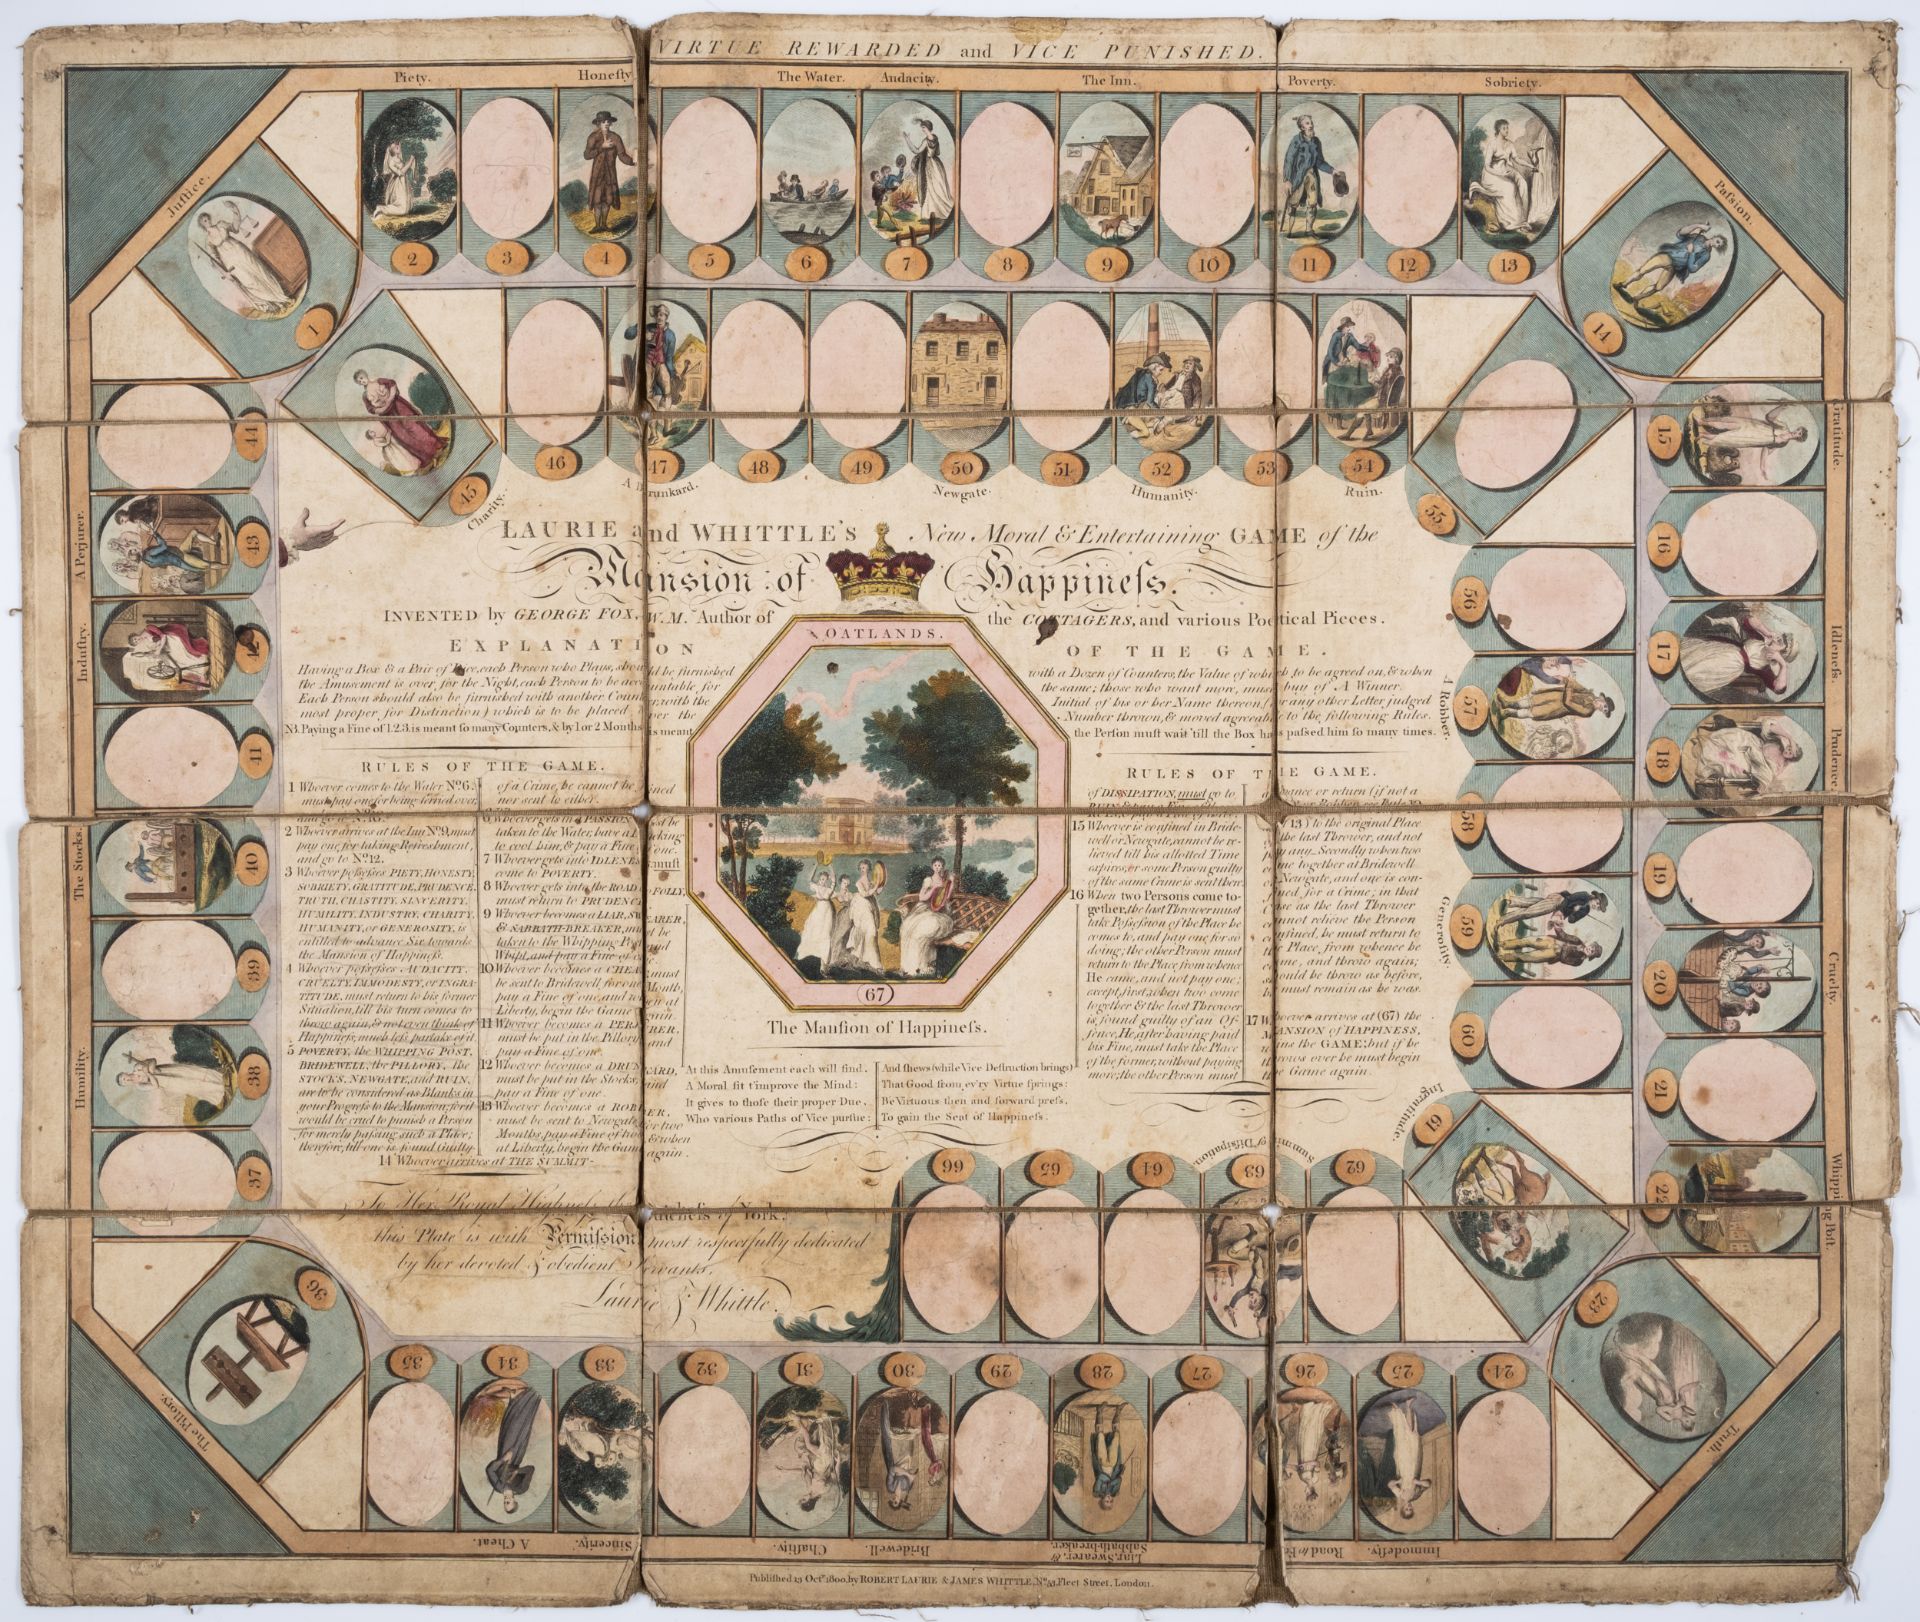 VIRTUE REWARDED and VICE PUNISHED.
Piety. Honeſty The Water. Audacity. The Inn. Poverty. Sobriety.
Juſtice. Paſsion.
2 3 4 5 6 7 8 9 10 11 12 13
1 14
46 47 48 49 50 51 52 53 54
A Drunkard. Newgate. Humanity. Ruin.
45 Charity. 55
44 43 42 41 40 39 38 37 36
A Perjurer.
Induſtry.
The Stocks.
Humility.
The Pillory.
15 16 17 18 19 20 21 22 23
Gratitude.
Idleneſs.
Prudence.
Cruelty.
Whipping Poſt.
Truth.
56 57 58 59 60 61
A Robber.
Generoſity.
Ingratitude.
LAURIE and WHITTLE'S New Moral & Entertaining GAME of the
Manſion of Happineſs.
INVENTED by GEORGE FOX, W.M. Author of the COTTAGERS, and various Poetical Pieces.
EXPLANATION OF THE GAME.
Having a Box & a Pair of Dice, each Perſon who Plays, ſhould be furniſhed with a Dozen of Counters, the Value of which to be agreed on, & when
the Amuſement is over, for the Night, each Perſon to be accountable, for the ſame; thoſe who want more, muſt buy of A Winner.
Each Perſon ſhould alſo be furniſhed with another Counter, with the Initial of his or her Name thereon, (or any other Letter, judged
moſt proper for Diſtinction) which is to be placed, over the Number thrown, & moved agreeable to the following Rules.
NB. Paying a Fine of 1.2.3. is meant ſo many Counters, & by 1 or 2 Months is meant the Perſon muſt wait 'till the Box has paſsed him ſo many times.
OATLANDS.
67
The Manſion of Happineſs.
RULES OF THE GAME.
1 Whoever comes to the Water Nº 6.
muſt pay one for being ferried over,
and go to Nº 10.
2 Whoever arrives at the Inn Nº 9, muſt
pay one for taking Refreshment,
and go to Nº 12.
3 Whoever poſseſses PIETY, HONESTY,
SOBRIETY, GRATITUDE, PRUDENCE,
TRUTH, CHASTITY, SINCERITY,
HUMILITY, INDUSTRY, CHARITY,
HUMANITY, or GENEROSITY, is
entitled to advance Six towards
the Manſion of Happineſs.
4 Whoever poſseſses AUDACITY,
CRUELTY, IMMODESTY, or INGRA-
TITUDE, muſt return to his former
Situation, till his turn comes to
throw again, & not even think of
Happineſs, much leſs partake of it.
5 POVERTY, the WHIPPING POST,
BRIDEWELL, the PILLORY, the
STOCKS, NEWGATE, and RUIN,
are to be conſidered as Blanks in
your Progreſs to the Manſion; for it
would be cruel to puniſh a Perſon
for merely paſsing ſuch a Place;
therefore, till one is found Guilty
of a Crime, he cannot be fined
nor sent to either.
6 Whoever gets in a PASSION must be
taken to the Water, have a Ducking
to cool him, & pay a Fine of one.
7 Whoever gets into IDLENESS, muſt
come to POVERTY.
8 Whoever gets into the ROAD to FOLLY,
muſt return to PRUDENCE.
9 Whoever becomes a LIAR, SWEARER,
& SABBATH-BREAKER, muſt be
taken to the Whipping Poſt and
Whipt, and pay a Fine of one.
10 Whoever becomes a CHEAT, muſt
be sent to Bridewell, for one Month,
pay a Fine of one, and when at
Liberty, begin the Game again.
11 Whoever becomes a PERJURER,
muſt be put in the Pillory, and
pay a Fine of one.
12 Whoever becomes a DRUNKARD,
muſt be put in the Stocks, and
pay a Fine of one.
13 Whoever becomes a ROBBER,
muſt be sent to Newgate, for two
Months, pay a Fine of two, & when
at Liberty, begin the Game again.
14 Whoever arrives at THE SUMMIT-
RULES OF THE GAME.
of DISSIPATION, muſt go to
RUIN, & pay a Fine of
15 Whoever is confined in Bride-
well or Newgate, cannot be re-
lieved till his allotted Time
expires, or some Perſon guilty
of the same Crime is sent there.
16 When two Perſons come to-
gether, the laſt Thrower muſt
take Poſseſsion of the Place he
comes to, and pay one for so
doing; the other Perſon muſt
return to the Place, from whence
He came, and not pay one;
except, firſt, when two come
together & the laſt Thrower
is found guilty of an Of-
fence, He, after having paid
his Fine, muſt take the Place
of the former, without paying
more; the other Perſon muſt
advance or return (if not a
13) to the original Place
of the laſt Thrower, and not
pay any. Secondly when two
come together at Bridewell
or Newgate, and one is con-
fined for a Crime; in that
Caſe as the laſt Thrower
cannot relieve the Perſon
confined, he muſt return to
the Place, from whence he
came, and throw again;
ſhould he throw as before,
he muſt remain as he was.
17 Whoever arrives at (67) the
MANSION of HAPPINESS,
wins the GAME; but if he
throws over he muſt begin
the Game again.
At this Amuſement each will find,
A Moral fit t'improve the Mind:
It gives to thoſe their proper Due,
Who various Paths of Vice purſue:
And ſhews (while Vice Deſtruction brings)
That Good from ev'ry Virtue ſprings:
Be Virtuous then and forward preſs,
To gain the Seat of Happineſs.
To Her Royal Highneſs the Dutcheſs of York,
this Plate is with Permiſsion most respectfully dedicated
by her devoted & obedient Servants,
Laurie & Whittle.
66 65 64 63 62
Summit of Diſsipation.
35 34 33 32 31 30 29 28 27 26 25 24
A Cheat. Sincerity. Chaſtity. Bridewell. Liar, Swearer, & Sabbath-breaker. Road to Fo Immodeſty.
Publiſhed 13 Octr. 1800, by ROBERT LAURIE & JAMES WHITTLE, Nº 53, Fleet Street, London.